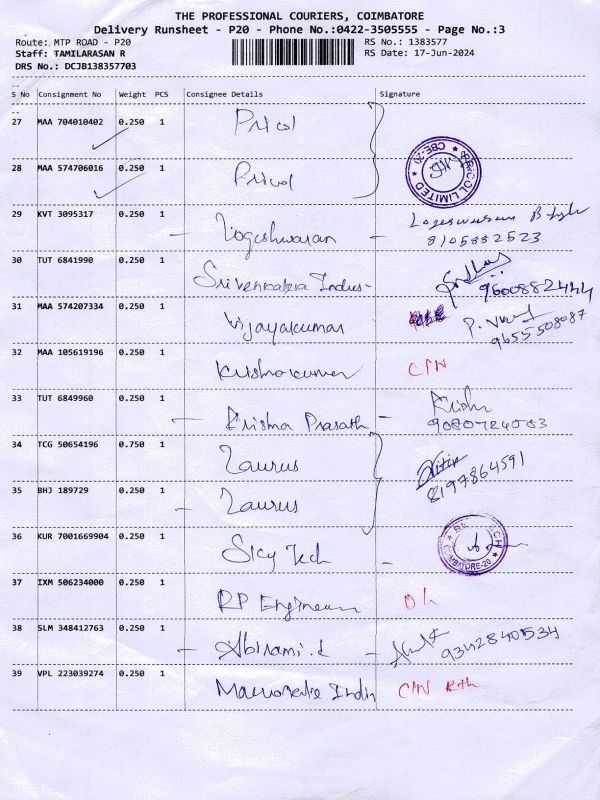 THE PROFESSIONAL COURIERS, COIMBATORE
Delivery Runsheet - P20 - Phone No.:0422-3505555 - Page No.:3
Route: MTP ROAD - P20 RS No.: 1383577
Staff: TAMILARASAN R RS Date: 17-Jun-2024
DRS No.: DCJB138357703
S No Consignment No Weight PCS Consignee Details Signature
27 MAA 704010402 0.250 1 Pricol
28 MAA 574706016 0.250 1 Pricol
PRICOL LIMITED CBE-20
29 KVT 3095317 0.250 1 Yogeshwaran
8105882523
30 TUT 6841990 0.250 1 Srivenkatra Indus-
9600882444
31 MAA 574207334 0.250 1 Vijayakumar
9655508087
32 MAA 105619196 0.250 1 Krishnakumar C/N
33 TUT 6849960 0.250 1 Krishna Prasath - Krishn
34 TCG 50654196 0.750 1 Zaurus
8197864591
35 BHJ 189729 0.250 1 Zaurus
36 KUR 7001669904 0.250 1 Sky Tech
COIMBATORE-20
37 IXM 506234000 0.250 1 RP Engineers
38 SLM 348412763 0.250 1 - Abirami.L
9342840534
39 VPL 223039274 0.250 1 India C/N